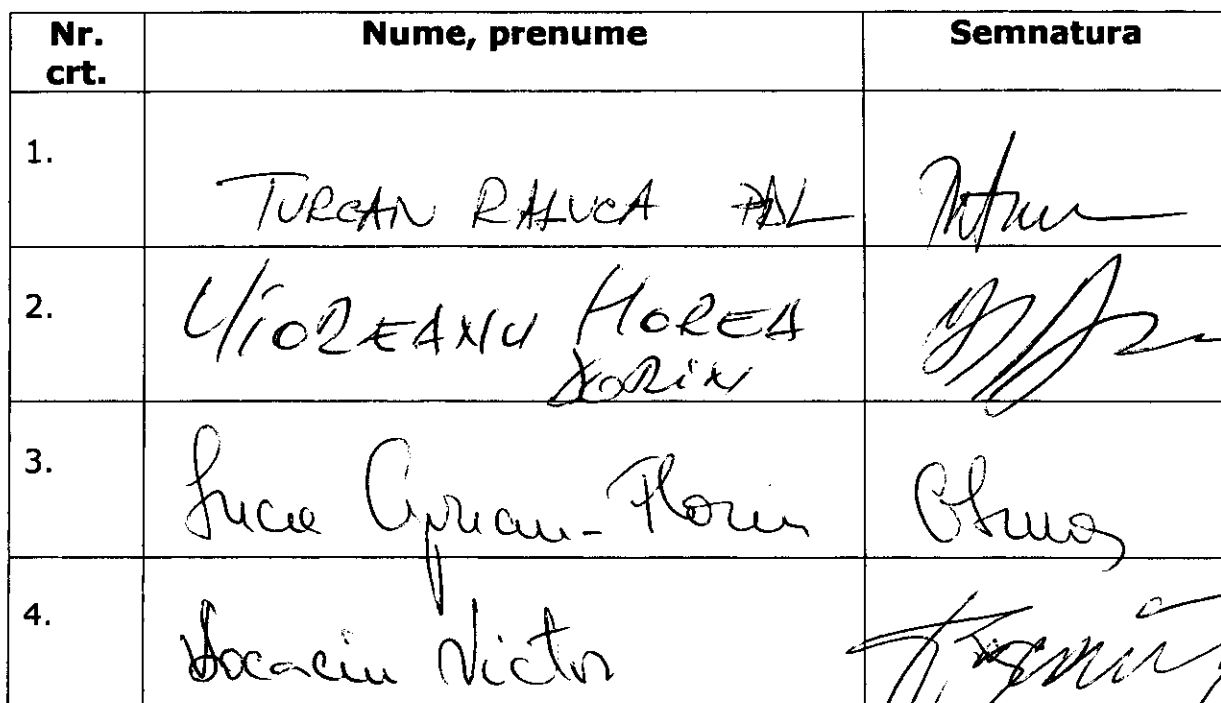 Nr. crt. Nume, prenume Semnatura
1. TURCAN RALUCA PDL
2. UIOREANU HOREA
DORIN
3. Luca Ciprian-Florin
4. Socaciu Victor